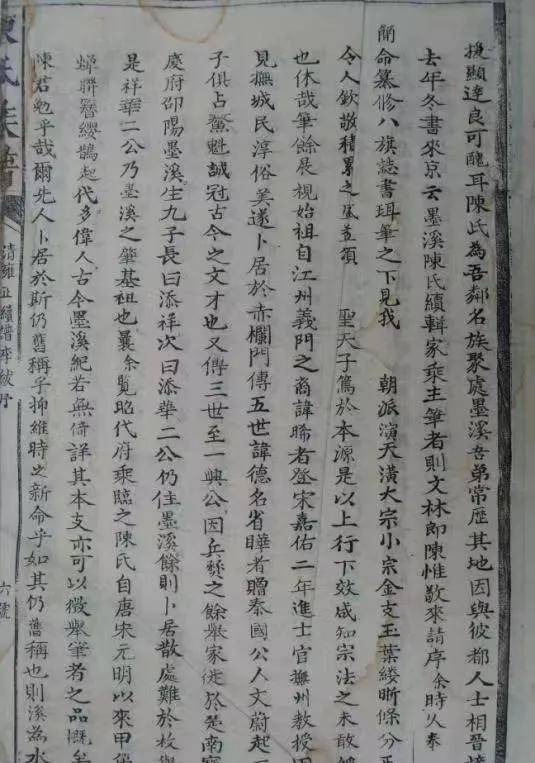 援顯達良可醜耳陳氏為吾鄰名族聚處墨溪吾弟常歷其地因與彼都人士相晉接
去年冬書來京云墨溪陳氏續輯家乘主筆者則文林郎陳惟敬來請序余時久奉
簡命纂修八旗誌書珥筆之下見我 朝派演天潢大宗小宗金支玉葉縷晰條分
令人欽敬積累之 聖天子篤於本源是以上行下效咸知宗法之未敢
也休哉筆餘展視始祖自江州義門之裔諱晞者登宋嘉佑二年進士官撫州教授因
見撫城民淳俗美遂卜居於赤欄門傳五世諱德名省曄者贈秦國公人文蔚起
子俱占鰲魁誠冠古今之文才也又傳三世至一興公因兵燹之餘舉家徙於楚南寶
慶府邵陽墨溪生九子長曰添祥次曰添華二公仍住墨溪餘則卜居散處難於枚舉
是祥華二公乃墨溪之肇基祖也曩余覽昭代府乘臨之陳氏自唐宋元明以來甲
蟬聯簪纓鵲起代多偉人古今墨溪紀若無倚詳其本支亦可以徵舉筆者之品概矣
陳君勉乎哉爾先人卜居於斯仍舊稱乎抑維時之新命乎如其仍舊稱也則溪為水
陳氏族譜
清雍正續譜序
六號